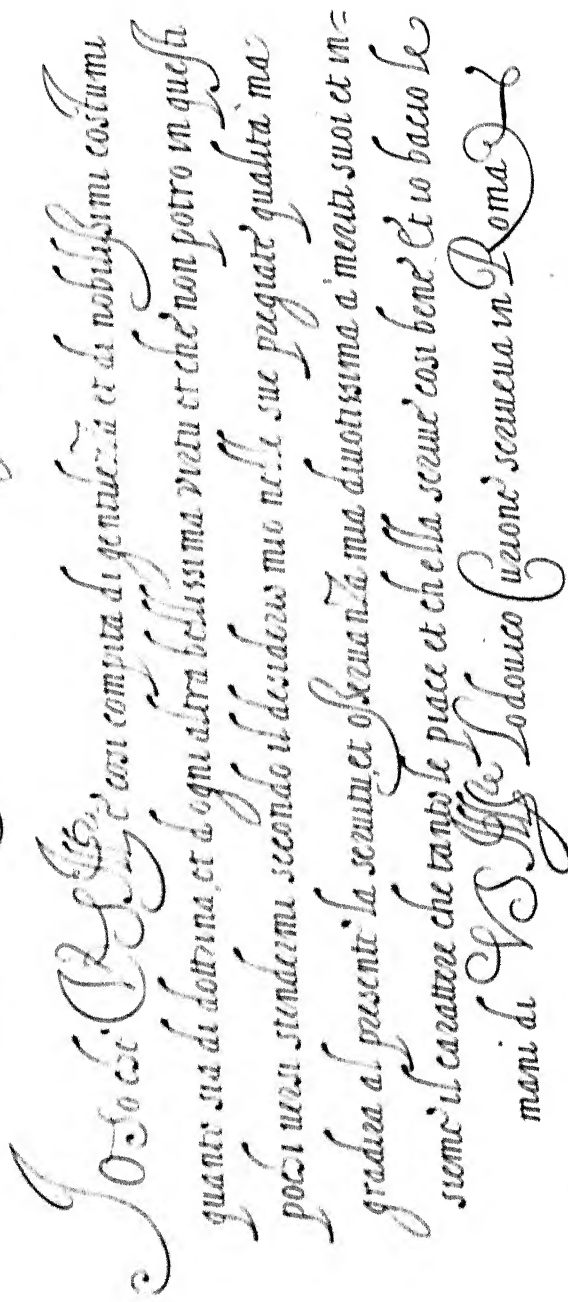 Io so che V. S. Ill.re è cosi compita di gentilezza et di nobilissimi costumi
quanto sia di dottrina, et d'ogni altra bellissima virtu et che non potro in questi
pochi uersi stendermi secondo il desiderio mio nelle sue pregiate qualità ma
gradira al presente la seruitu, et osseruanza mia diuotissima a' meriti suoi et in=
sieme il carattere che tanto le piace et ch'ella scriue cosi bene Et io bacio le
mani di V S Ill.re Lodouico Curione scriueua in Roma